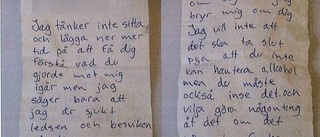 Jag tänker inte sitta
och lägga ner mer
tid på att få dig
förstå vad du
gjorde mot mig
igår men jag
säger bara att
jag är sjukt
ledsen och besviken
om dig
bryr mig om dig
Jag vill inte att
det ska ta slut
pga att du inte
kan hantera alkohol
men du måste
också inse det och
vilja göra någonting
åt det om det